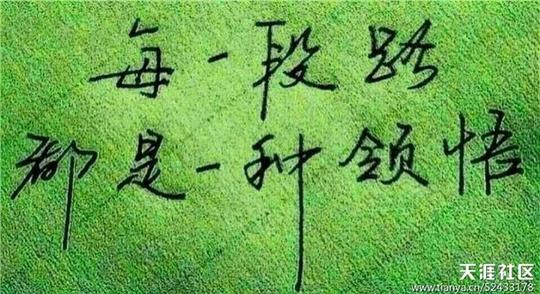 每一段路
都是一种领悟
天涯社区
www.tianya.cn/52433178